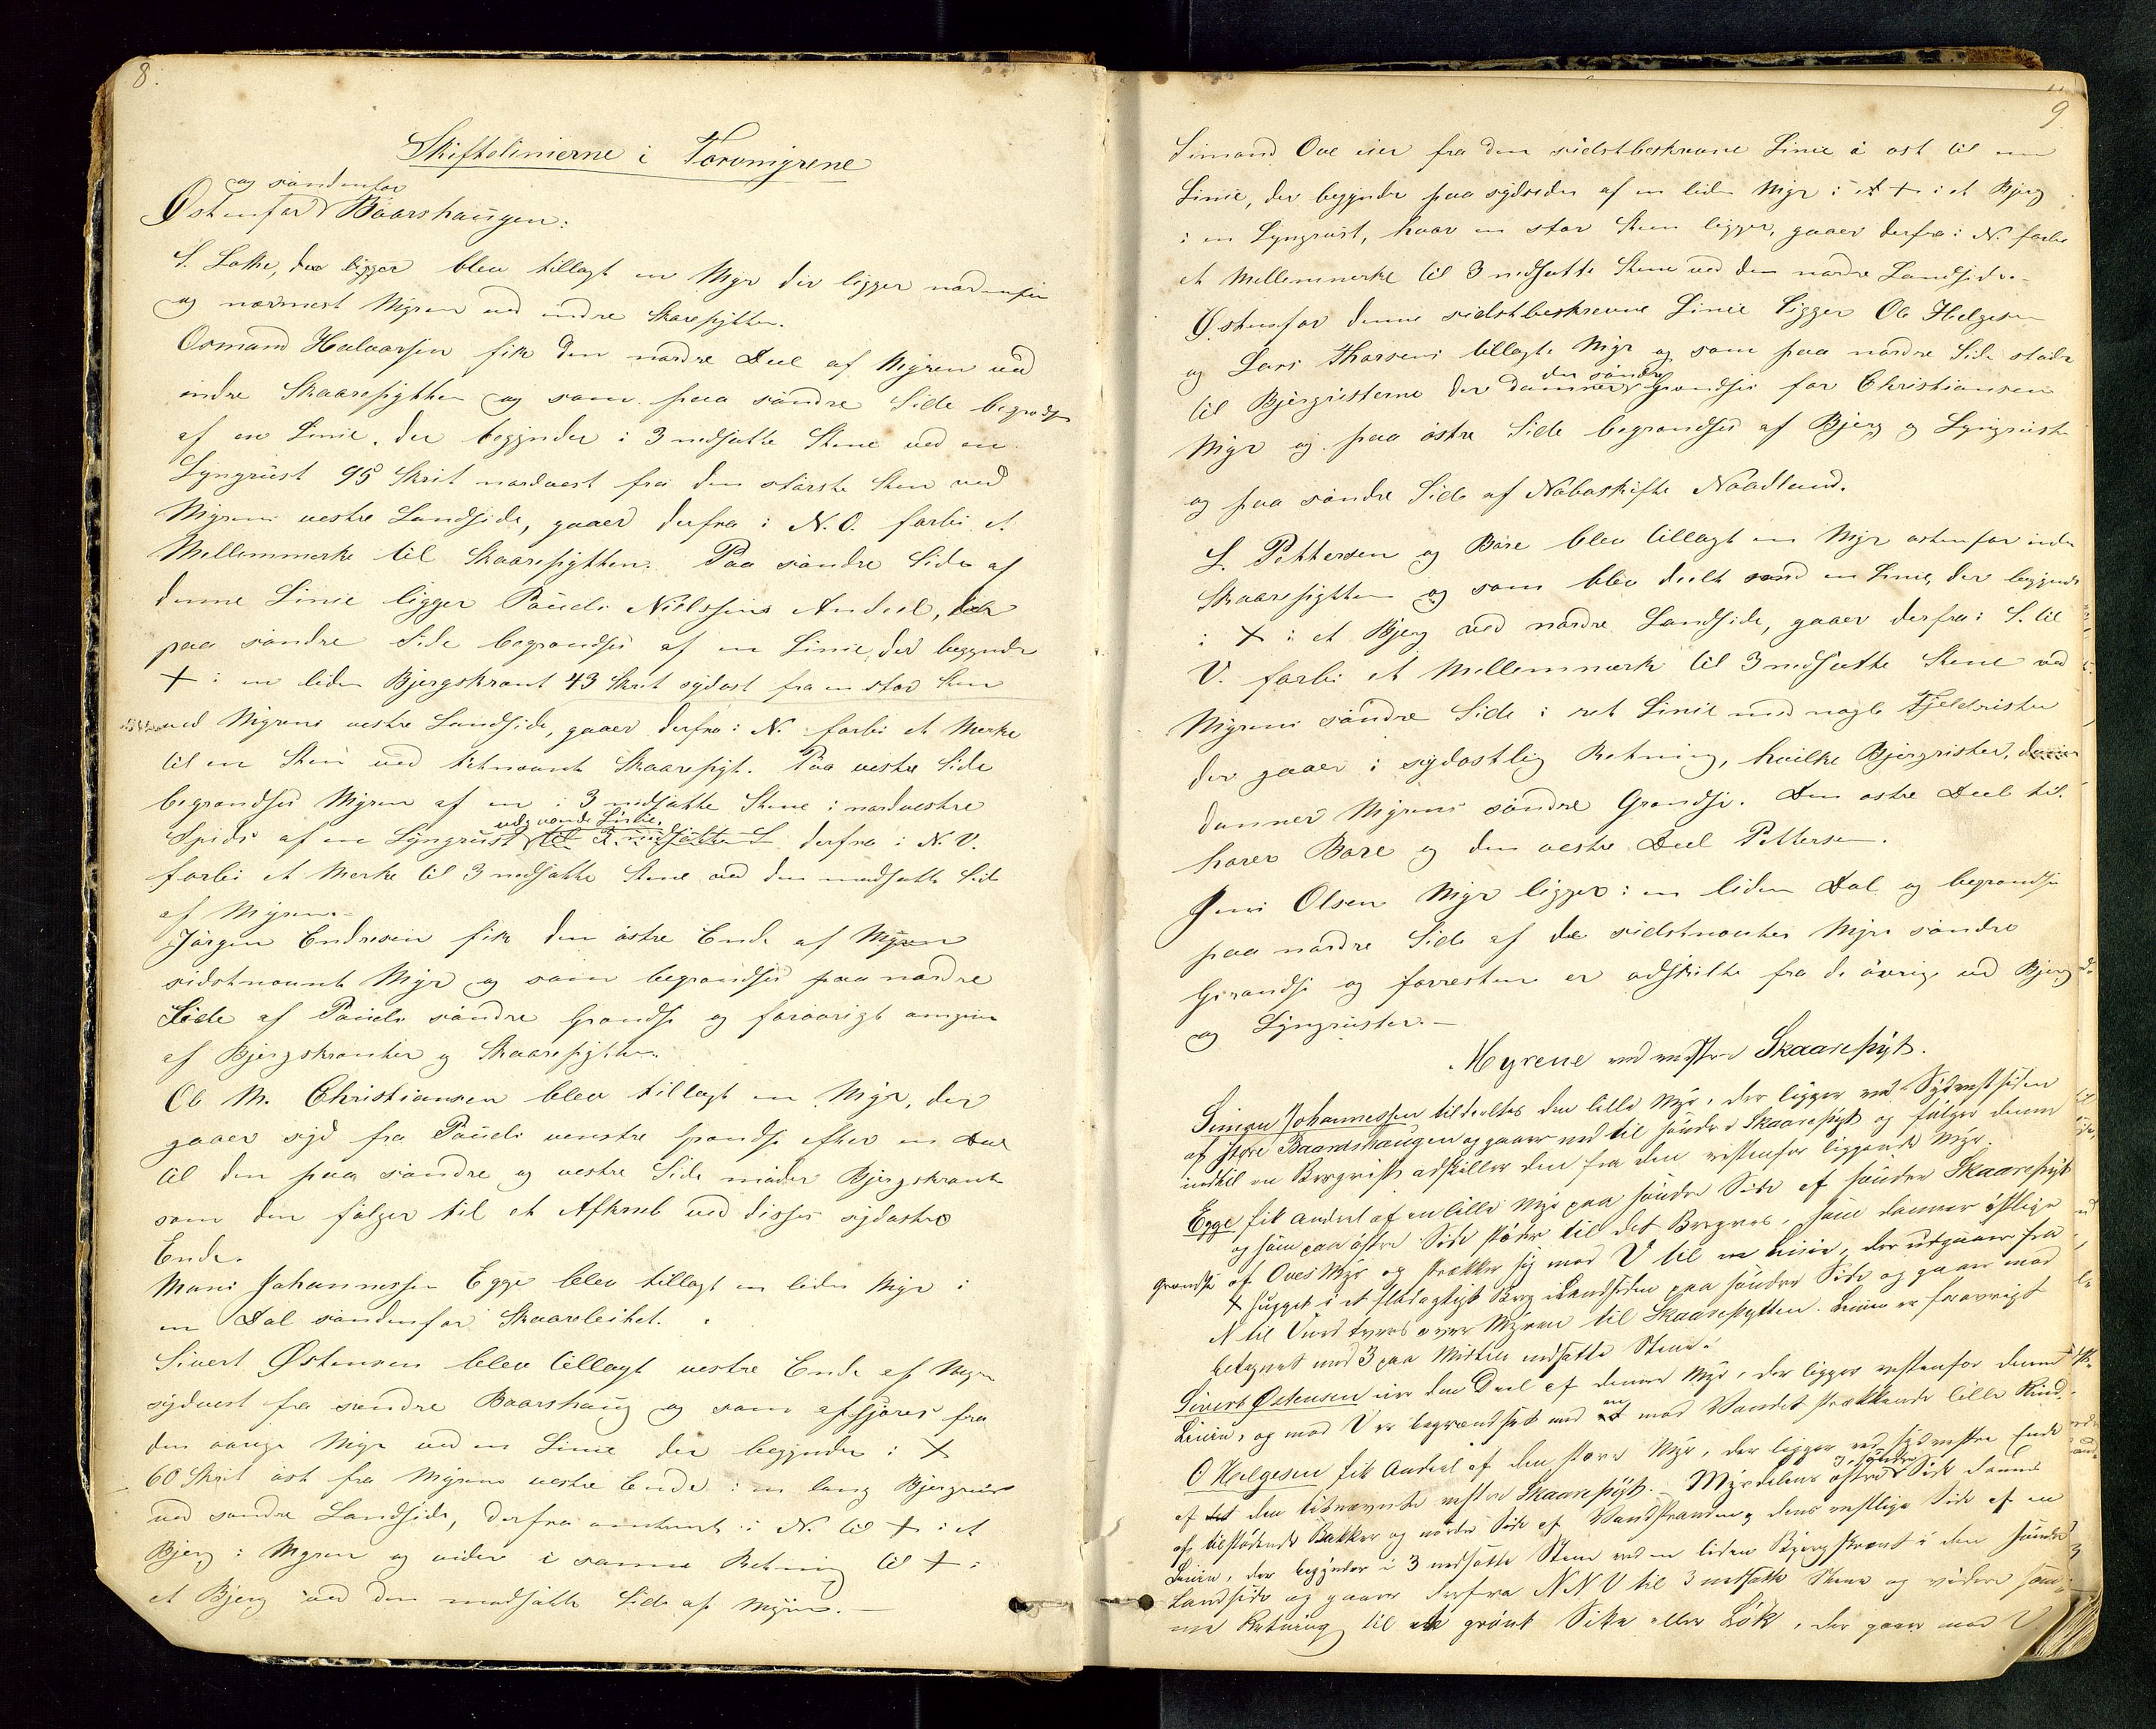 8.
Skiftelinierne i Torvmyrene
og söndenfor
Østenfor Baarshaugen:
S. Lothe, der ligger blev tillagt en Myr der ligger nordenfor
og nærmest Myren ved indre Skarepytten.
Osmand Halvorsen fik den nordre Deel af Myren ved
indre Skaarepytten og som paa söndre Side begrændses
af en Linie, der begynder i 3 nedsatte Stene ved en
Lyngrust 95 Skrit nordvest fra den störste Sten ved
Myrens vestre Landside, gaaer derfra i N.O. forbi et
Mellemmerke til Skaarepytten. Paa söndre Side af
denne Linie ligger Pouels Nielssens Andeel, der
paa söndre Side begrændses af en Linie, der begynder
+ i en liden Bjergskrænt 43 Skrit sydost fra en stor Sten
ved Myrens vestre Landside, gaaer derfra i N. forbi et Merke
til en Sten ved sitnævnte Skaarepyt. Paa vestre Side
begrændses Myren af en i 3 nedsatte Stene i nordvestre
udgaaende Linie,
Spids af en Lyngrust til 3 nedsatte S derfra i N.V.
forbi et Merke til 3 nedsatte Stene ved den modsatte Side
af Myren.-
Jörgen Endresen fik den östre Ende af Myren
sidstnævnte Myr og som begrændses paa nordre
Side af Pouels söndre Grændse og forövrigt omgives
af Bjergskrænter og Skaarepytten.
Ole M. Christiansen blev tillagt en Myr, der
gaaer syd fra Pouels venstre Grændse efter en Dal
til den paa söndre og vestre Side möder Bjergskrænt
som den fölger til et Afkneb ved disses sydostre
Ende.
Mons Johannessen Egge blev tillagt en liden Myr i
en Dal söndenfor Skaarleitet.
Sivert Østensen blev tillagt vestre Ende af Myren
sydvest fra söndre Baarshaug og som afskjæres fra
den övrige Myr ved en Linie der begynder i +
60 Skrit öst fra Myrens vestre Ende i en lang Bjergrust
ved söndre Landside, derfra omtrent i N. til + i et
Bjerg i Myren og videre i samme Retning til + i
et Bjerg ved den modsatte Side af Myren.-
9
Simond Ove eier fra den sidstbeskrevne Linie i ost til en
Linie, der begynder paa sydsiden af en liden Myr i et + i et Bjerg
i en Lyngrust, hvor en stor Sten ligger, gaaer derfra i N. forbi
et Mellemmerke til 3 nedsatte Stene ved den nordre Landside.-
Østenfor denne sidstbeskrevne Linie ligger Ole Helgesen
og Lars Thorsens tillagte Myr og som paa nordre Side stöder
der söndre
til Bjergristerne der danner Grændse for Christiansen
Myr og paa östre Side begrændses af Bjerg og Lyngrust
og paa söndre Side af Naboskifte Nordland.
L. Pettersen og Bore blev tillagt en Myr ostenfor indre
Skaarepytten og som blev deelt ved en Linie, der begynder
i + i et Bjerg ved nordre Landside, gaaer derfra i S. til
V. forbi et Mellemmærk til 3 nedsatte Stene ved
Myrens söndre Side i ret Linie med nogle Fjeldrister
der gaaer i sydostlig Retning, hvilke Bjergrister,
danner Myrens söndre Grændse. Den ostre Deel til-
hörer Bore og den vestre Deel Pettersen.
Jens Olsen Myr ligger i en liden Dal og begrændses
paa nordre Side af de sidstnævntes Myrs söndre
Grændse og forresten er adskilte fra de övrige ved Bjerg
og Lyngruster.-
Myrene ved vestre Skaarepyt.
Simon Johannessen tildeeltes den lille Myr, der ligger ved Sydvestsiden
af store Baardshaugen og gaaer ned til söndre Skaarepyt og fölger denne
indtil en Bergrist adskiller den fra den vestenfor liggende Myr.
Egge fik Andeel af en lille Myr paa söndre Side af söndre Skaarepyt
og som paa östre Side stöder til det Berg, som danner östlige
Grændse af Oves Myr og strækker sig mod V til en Linie, der udgaaer fra
+ hugget i et fladagtigt Berg i Landsiden paa söndre Side og gaar mod
N til V tvers over Myren til Skaarepytten. Linien er forövrigt
betegnet med 3 paa Midten nedsatte Stene.
Sivert Østensen eier den Deel af denne Myr, der ligger vestenfor denne
Linie, og mod V er begrændset med en mod Vandet strækkende lille Rind.
O Helgesen fik Andeel af den store Myr, der ligger ved sydvestre Ende
og söndre
af den sitnævnte vestre Skaarepyt.- Myrdelens östre Side dannes
af tilstödende Bakker og nordre Side af Vandstranden, dens vestlige Side af en
Linie, der begynder i 3 nedsatte Stene ved en liden Bjergskrænt i den söndre
Landside og gaaer derfra NNV til 3 nedsatte Stene og videre sam-
me Retning til et grönt Sike eller Lök, der gaar mod V